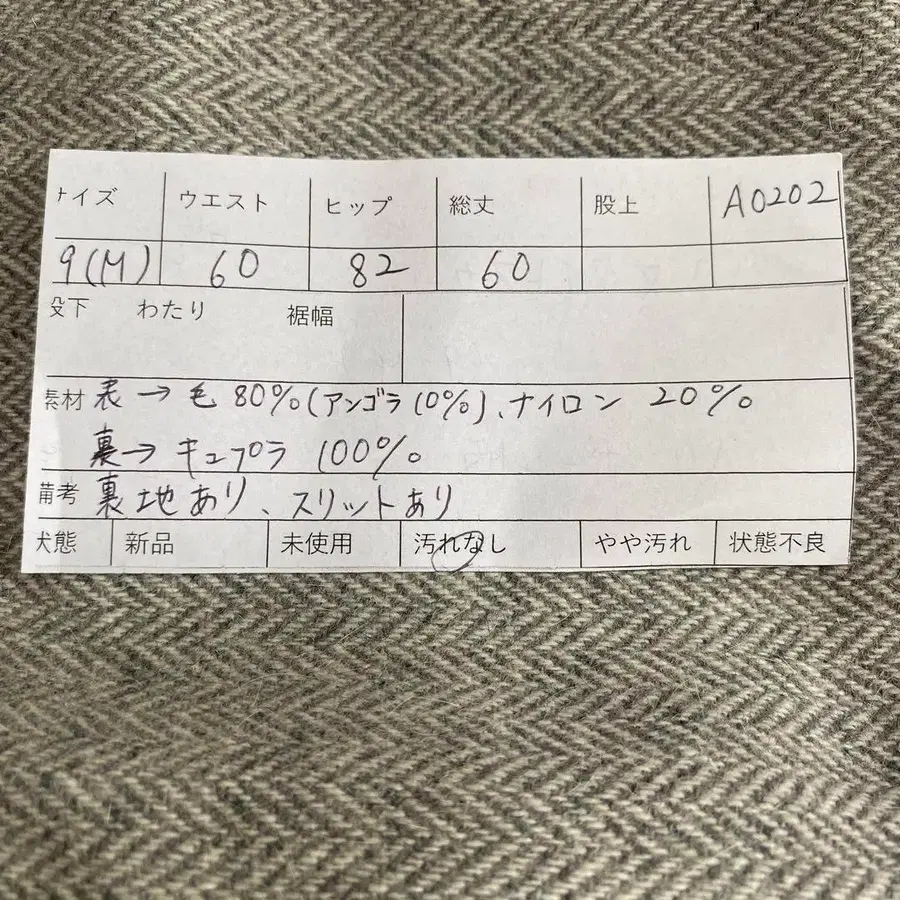 イズ ウエスト ヒップ 総丈 股上 A0202
9(M) 60 82 60
下 わたり 裾幅
素材 表→毛80%(アンゴラ10%)、ナイロン 20%
裏→キュプラ 100%
備考 裏地あり、スリットあり
状態 新品 未使用 汚れなし やや汚れ 状態不良